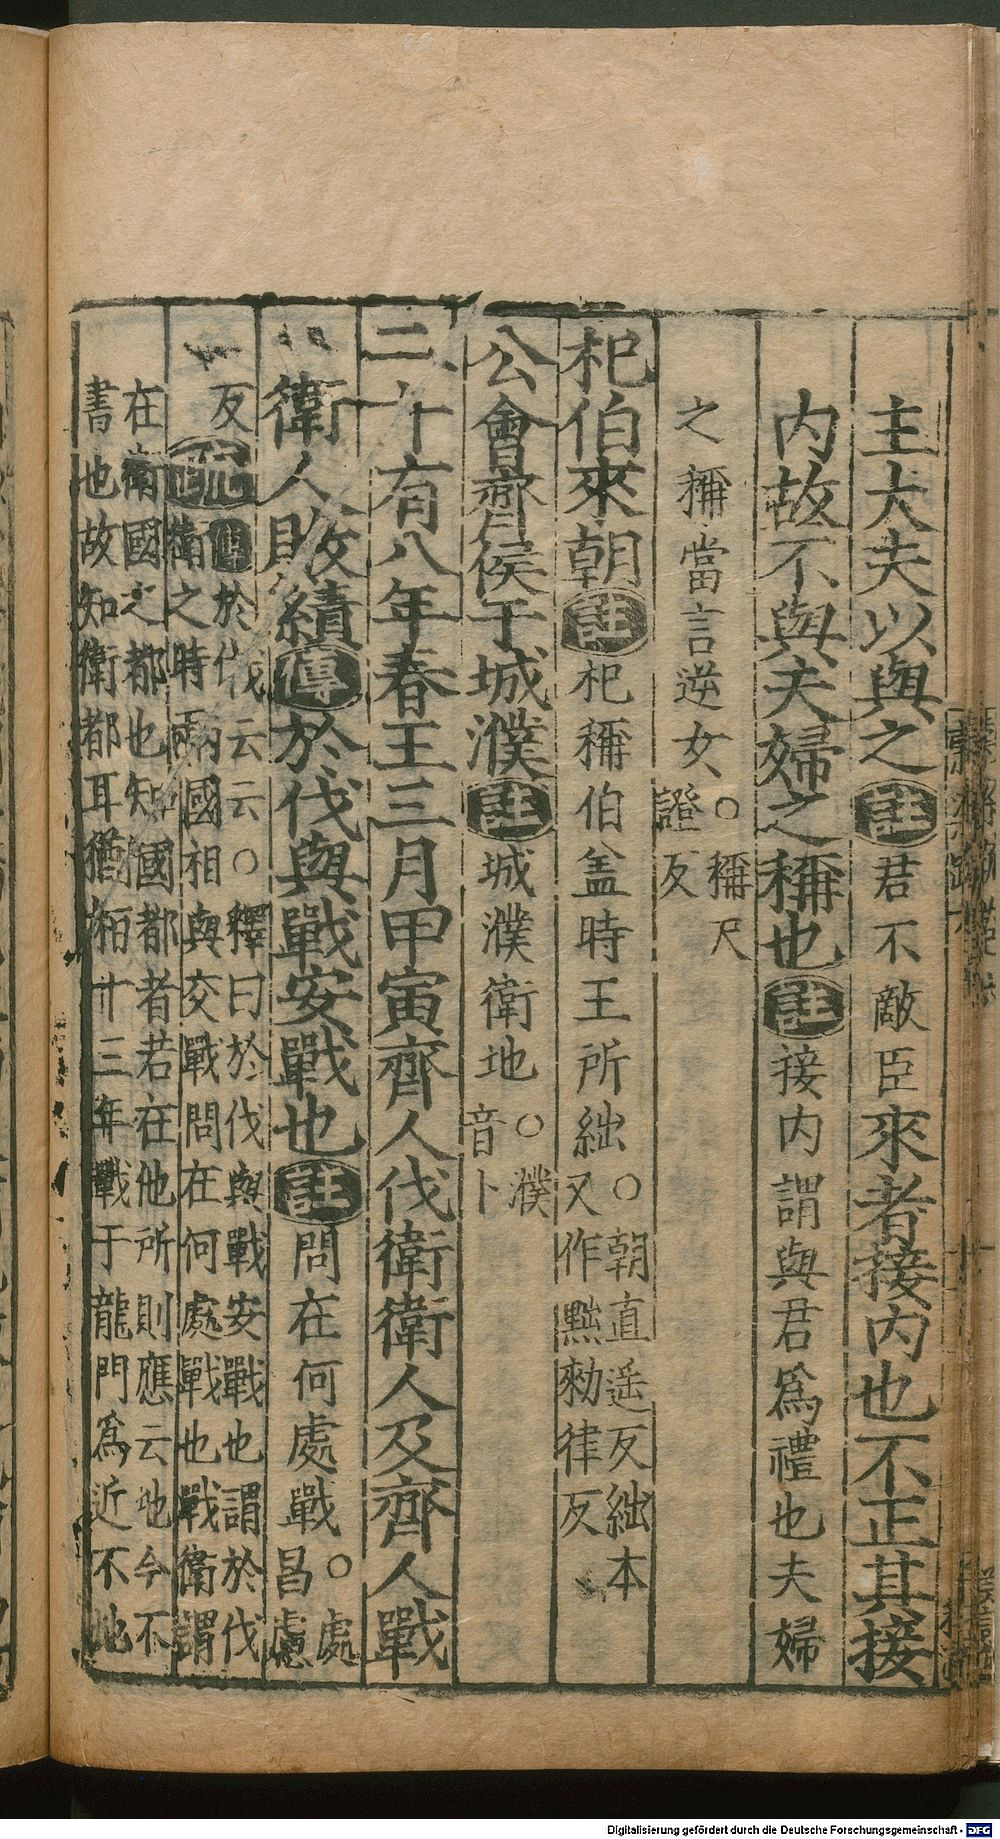 主大夫以與之註君不敵臣來者接内也不正其接
内故不與夫婦之稱也註接内謂與君爲禮也夫婦
之稱當言逆女○稱尺
證反
杞伯來朝註杞稱伯盖時王所絀○朝直遥反絀本
又作黜勑律反
公會齊侯于城濮註城濮衛地○濮
音卜
二十有八年春王三月甲寅齊人伐衛衛人及齊人戰
衛人敗績傳於伐與戰安戰也註問在何處戰○處
昌慮
反疏傳於伐云云○釋曰於伐與戰安戰也謂於伐
衛之時兩國相與交戰問在何處戰也戰衛謂
在衛國之都也知國都者若在他所則應云地今不
書也故知衛都耳猶桓十三年戰于龍門爲近不地
Digitalisierung gefördert durch die Deutsche Forschungsgemeinschaft - DFG